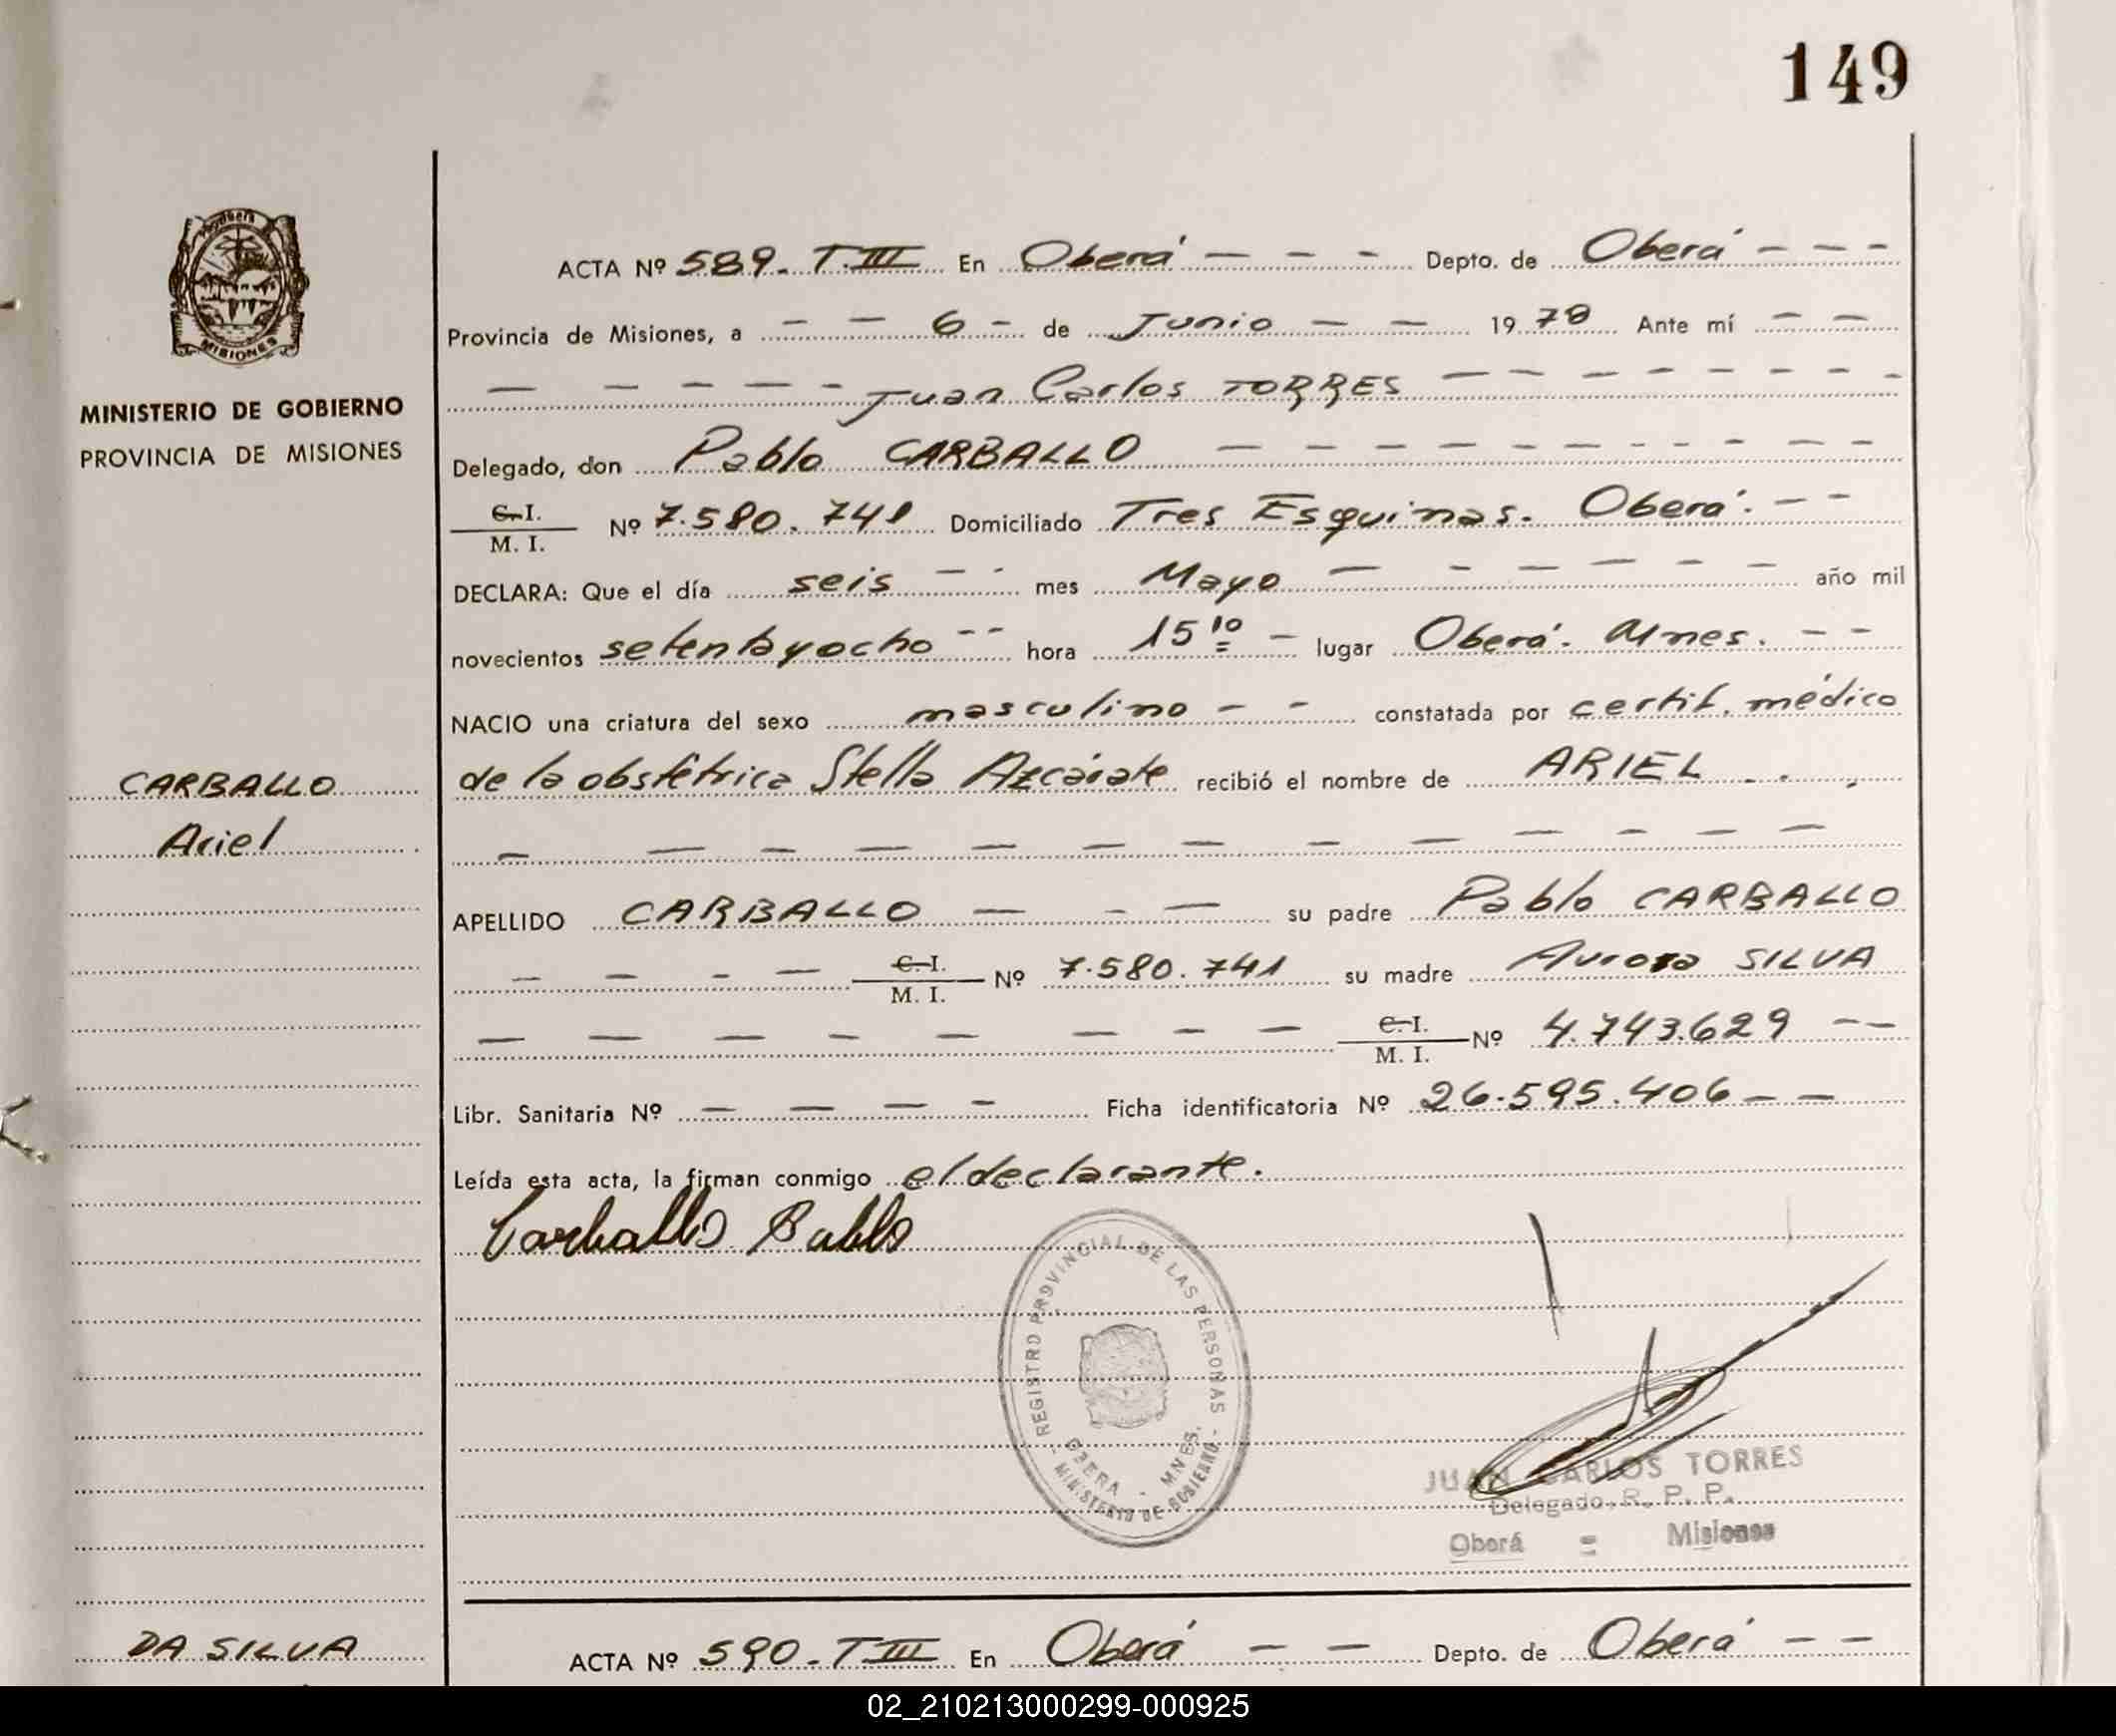 149
MISIONES
MINISTERIO DE GOBIERNO
PROVINCIA DE MISIONES
CARBALLO
Ariel
ACTA Nº 589. T.III En Oberá Depto. de Oberá
Provincia de Misiones, a 6 de Junio 1978 Ante mí
Juan Carlos TORRES
Delegado, don Pablo CARBALLO
C. I.
M. I.
Nº 7.580.741 Domiciliado Tres Esquinas. Oberá.
DECLARA: Que el día seis mes Mayo año mil
novecientos setentayocho hora 15 10 lugar Oberá. Mnes.
NACIO una criatura del sexo masculino constatada por certif. médico
de la obstétrica Stella Azcárate recibió el nombre de ARIEL
APELLIDO CARBALLO su padre Pablo CARBALLO
C. I.
M. I.
Nº 7.580.741 su madre Aurora SILVA
C. I.
M. I.
Nº 4.743.629
Libr. Sanitaria Nº Ficha identificatoria Nº 26.595.406
Leída esta acta, la firman conmigo el declarante.
Carballo Pablo
REGISTRO PROVINCIAL DE LAS PERSONAS
OBERA - MNES.
MINISTERIO DE GOBIERNO
JUAN CARLOS TORRES
Delegado, R. P. P.
Oberá = Misiones
DA SILVA
ACTA Nº 590. T III En Oberá Depto. de Oberá
02_210213000299-000925